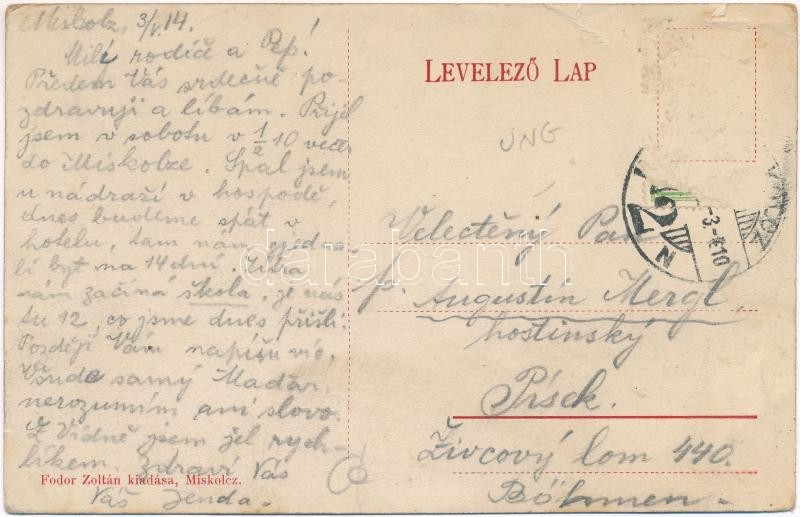 Miskolz, 3/V.14.
Milí rodiče a Pep!
Předem Vás srdečně po-
zdravuji a líbám. Přijel
jsem v sobotu v 1/2 10 večer
do Miskolze. Spal jsem
u nádraží v hospodě,
dnes budeme spát v
hotelu, tam nám zjedna-
li byt na 14 dní. Zítra
nám začíná škola, je nás
tu 12, co jsme dnes přišli.
Později Vám napíšu víc.
Všude samý Maďar,
nerozumím ani slovo.
Z Vídně jsem jel rych-
líkem. Zdraví Vás
Váš Jenda.
Fodor Zoltán kiadása, Miskolcz.
LEVELEZŐ LAP
UNG
Velectěný Pan
p. Augustin Mergl,
hostinský
Písek.
Živcový lom 440.
Böhmen
darabanth